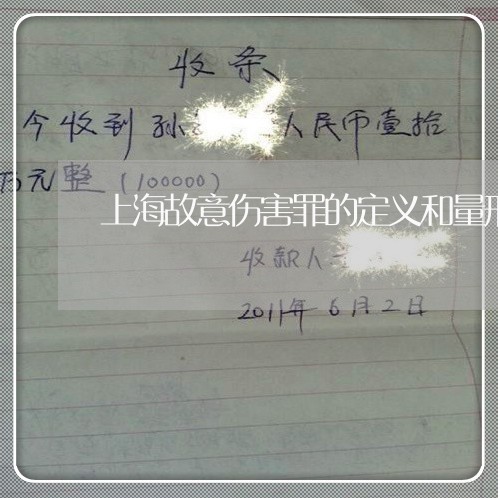 收条
今收到孙 人民币壹拾
万元整(100000)
上海故意伤害罪的定义和量刑
收款人
2011年6月2日